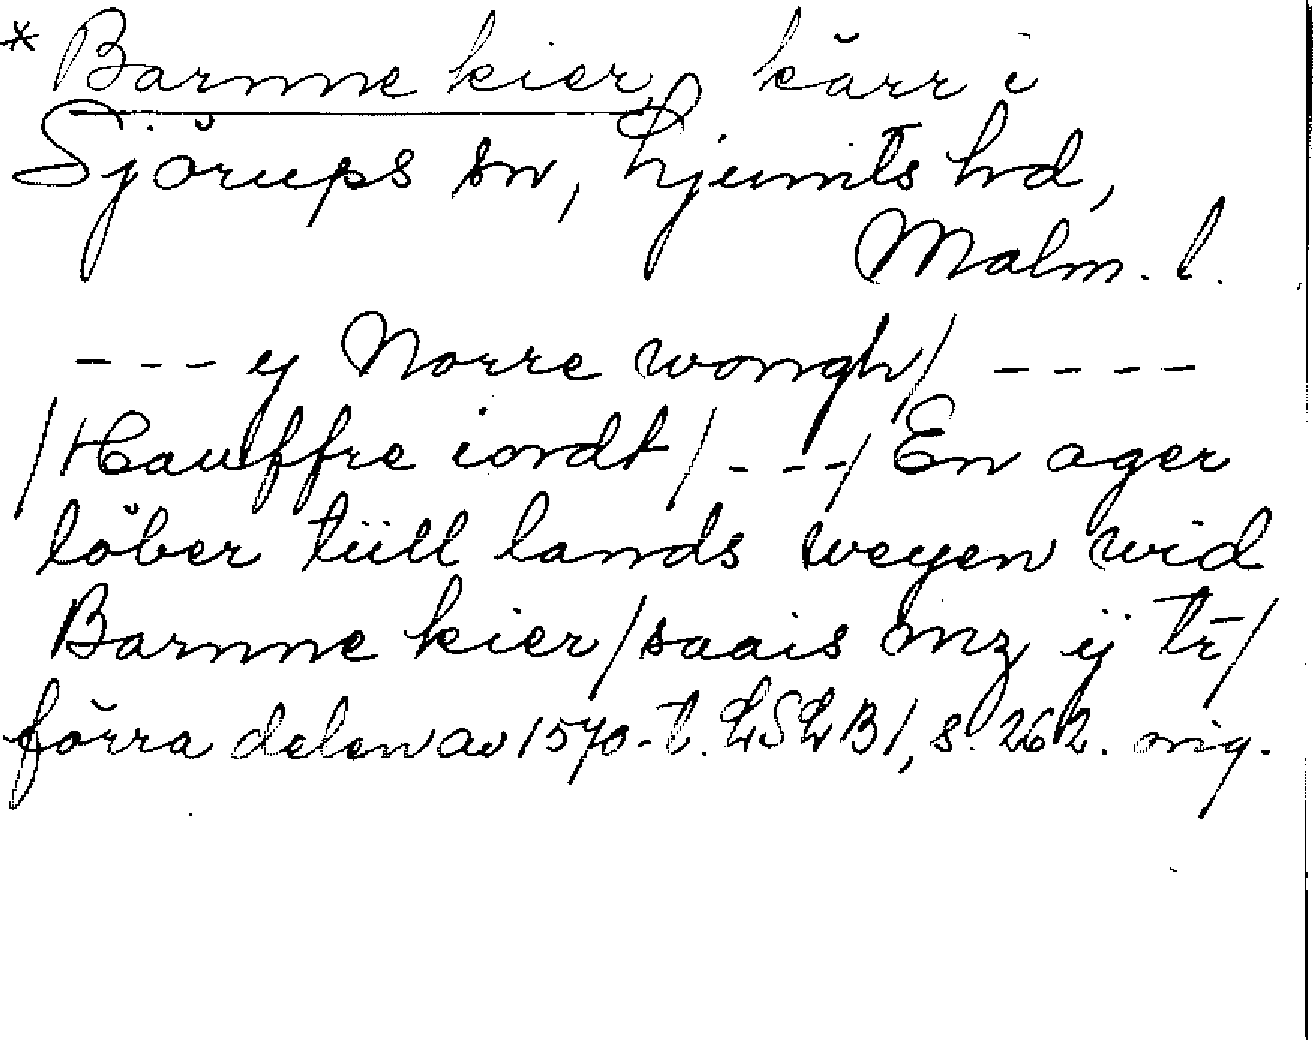 * Barnne kier, kärr i
Sjörups sn, Ljunits hd,
Malm. l.
- - - y Norre wongh/ - - - -
/Hauffre iordt/ - - -/ En ager
löber tüll lands weyen wid
Barnne kier/saais mz ij tr̄/
förra delen av 1570-t. LSLB1, s. 262. orig.